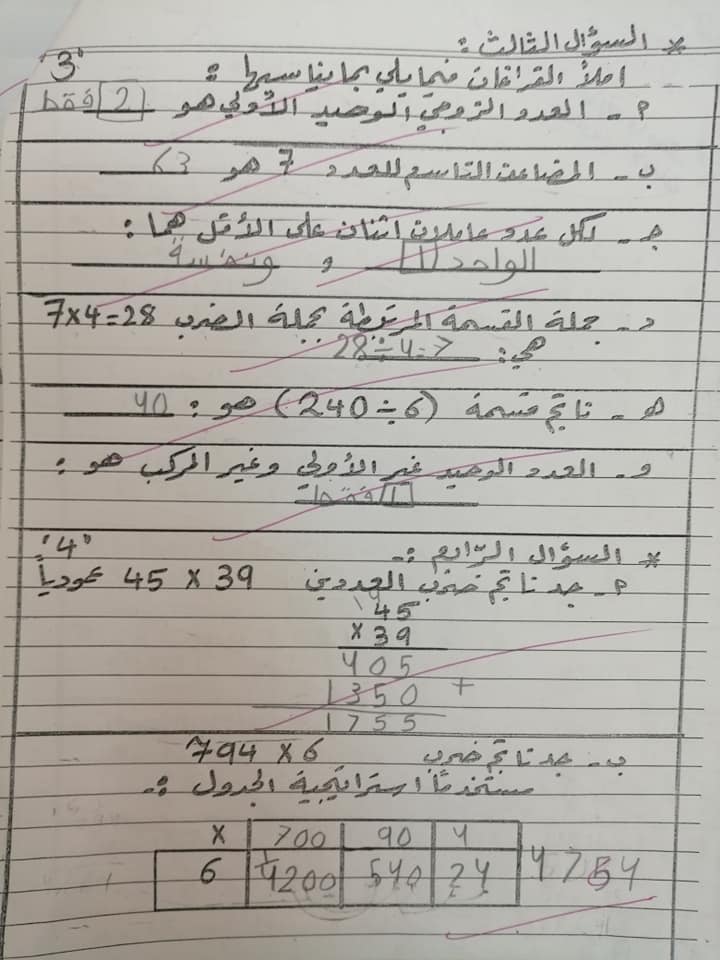 * السؤال الثالث :
"3"
املأ الفراغات فيما يلي بما يناسبها :
م - العدد الزوجي الوحيد الأولي هو 2 فقط
ب - المضاعف التاسع للعدد 7 هو 63
ج - لكل عدد عاملان اثنان على الأقل هما :
الواحد 1 و ونفسة
د - جملة القسمة المرتبطة بجملة الضرب 7×4=28
هي : 28÷4=7
ه - ناتج قسمة (240÷6) هو : 40
و - العدد الوحيد غير الأولي وغير المركب هو :
1 فقط
* السؤال الرابع :-
"4"
م - جد ناتج ضرب العددين 39 × 45 عمودياً
45
× 39
405
1350 +
1755
ب - جد ناتج ضرب 794 × 6
مستخدماً استراتيجية الجدول :-
× 700 90 4
6 4200 540 24 4764